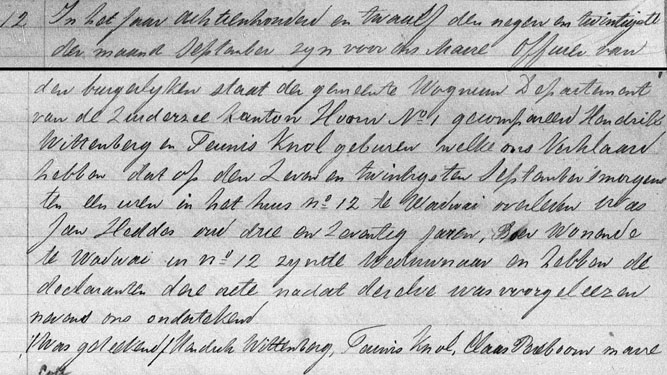 12 In het Jaar achtienhonderd en twaalf den negen en twintigste
der maand September zyn voor ons Maire Officier van
den burgerlyken staat der gemeente Wognum Departement
van de Zuiderzee Kanton Hoorn No 1 gecompareerd Hendrik
Wittenberg en Teunis Knol geburen welke ons Verklaard
hebben dat op den Zeven en twintigsten September 'smorgens
ten een uren in het huis no 12 te Wadwai overleden is
Jan Heddes oud drie en Zeventig jaren, Wonende
te Wadwai in no 12 zynde Weduwnaar en hebben de
declaranten deze acte nadat dezelve was voorgeleezen
nevens ons ondertekend
(Was getekend) Hendrik Wittenberg, Teunis Knol, Claas maire